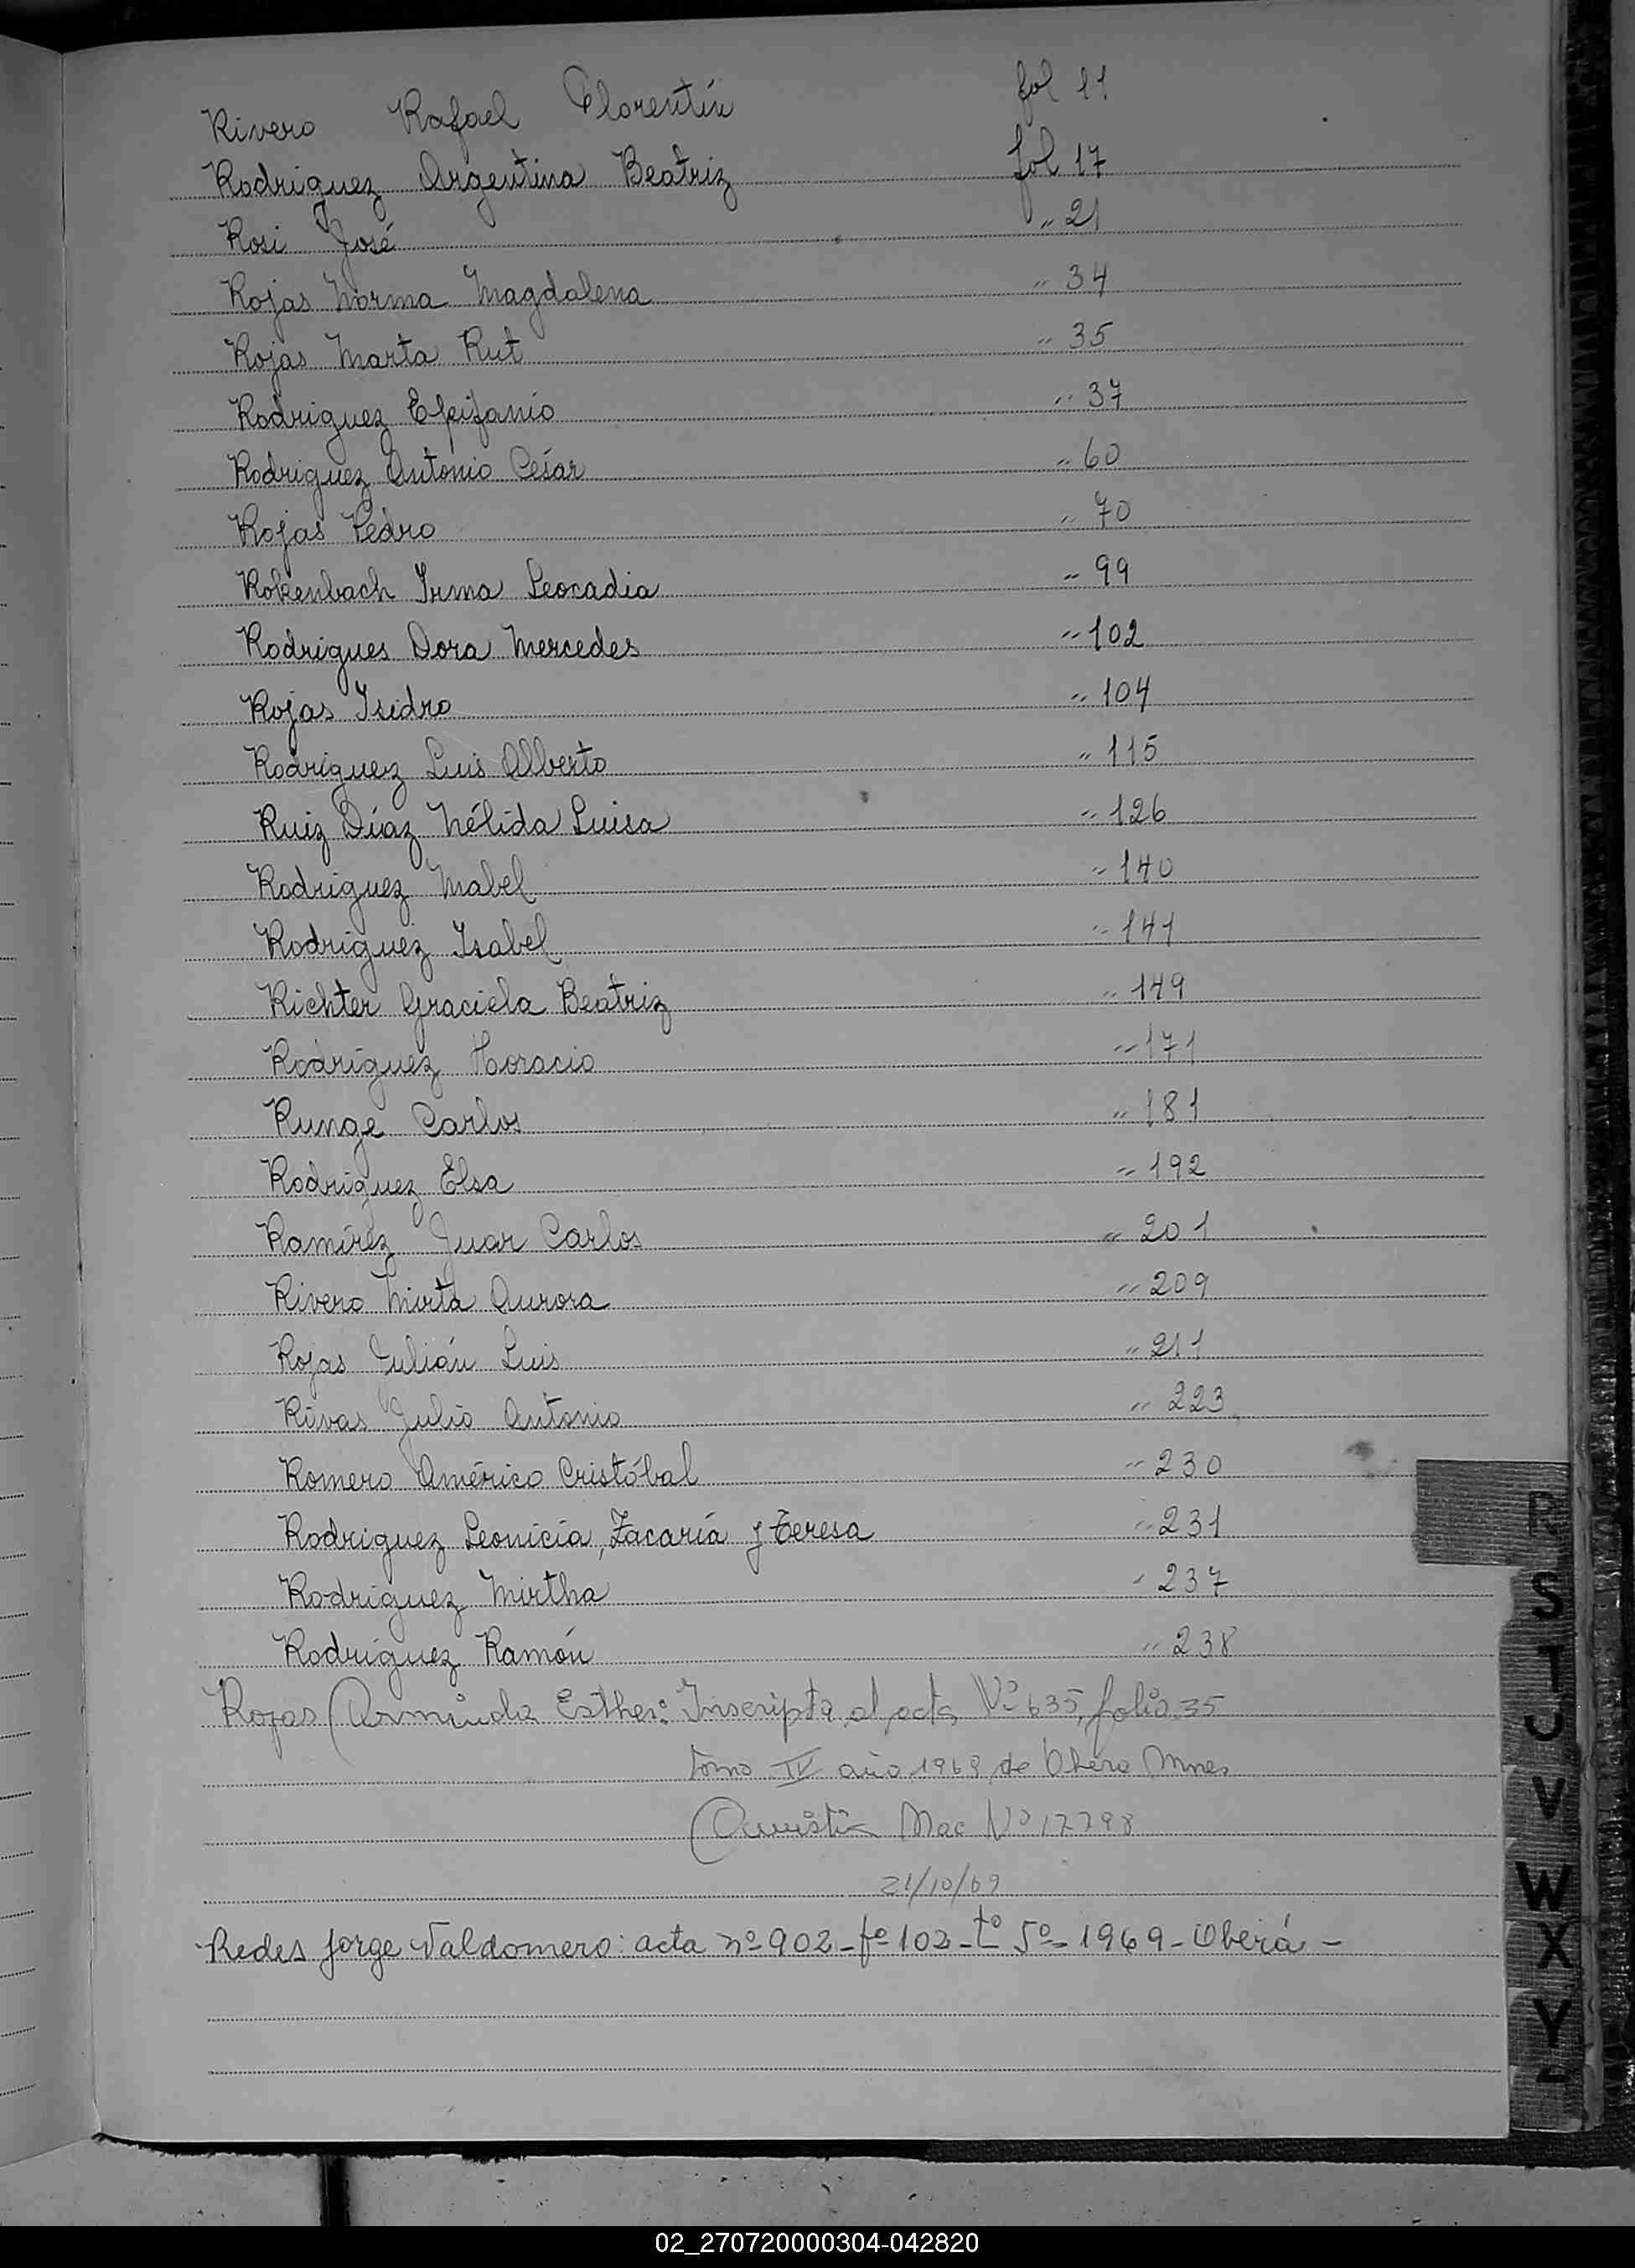 Rivero Rafael Florentín fol 11
Rodriguez Argentina Beatriz fol 17
Rosi José " 21
Rojas Norma Magdalena " 34
Rojas Marta Rut " 35
Rodriguez Epifanio " 37
Rodriguez Antonio César " 60
Rojas Pedro " 70
Rokenbach Irma Leocadia " 99
Rodrigues Dora Mercedes " 102
Rojas Isidro " 104
Rodriguez Luis Alberto " 115
Ruiz Díaz Nélida Luisa " 126
Rodriguez Mabel " 140
Rodriguez Isabel " 141
Richter Graciela Beatriz " 149
Rodríguez Horacio " 171
Runge Carlos " 181
Rodriguez Elsa " 192
Ramírez Juan Carlos " 201
Rivero Mirta Aurora " 209
Rojas Julián Luis " 211
Rivas Julio Antonio " 223
Romero Américo Cristóbal " 230
Rodriguez Leonicia, Zacaría y Teresa " 231
Rodriguez Mirtha " 237
Rodríguez Ramón " 238
Rojas Arminda Esther: Inscripta al acta Nº 635, folio 35
tomo IV año 1969 de Oberá Mnes
Nº 17798
21/10/69
Redes Jorge Valdomero: acta nº 902 - fº 102 - tº 5º - 1969 - Oberá -
R
S
T
U
V
W
X
Y
Z
02_270720000304-042820